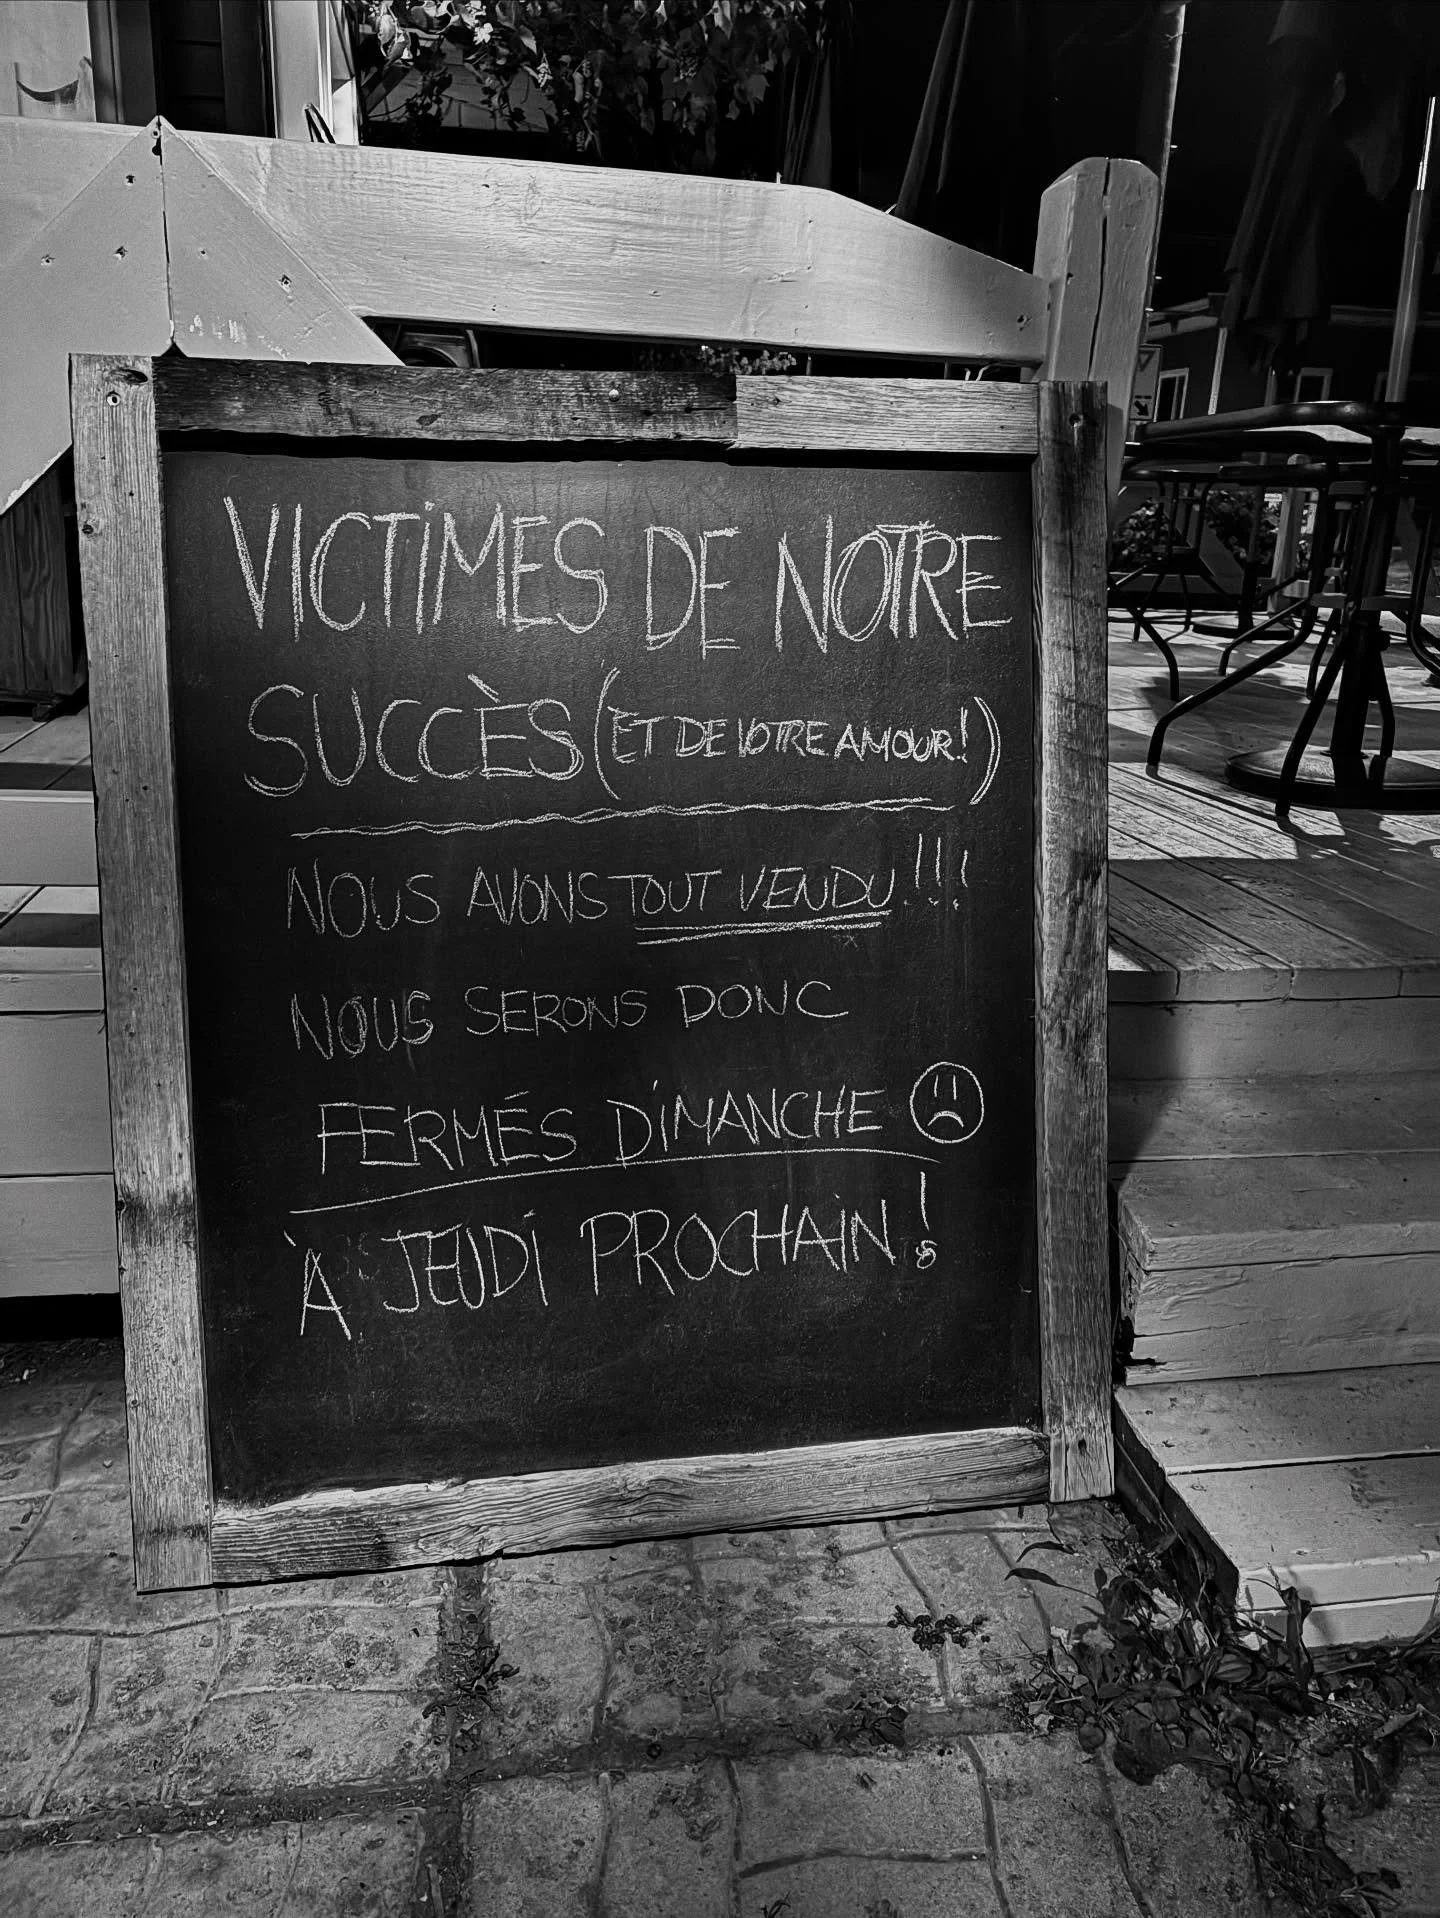 VICTIMES DE NOTRE
SUCCÈS (ET DE VOTRE AMOUR!)
NOUS AVONS TOUT VENDU!!!
NOUS SERONS DONC
FERMÉS DIMANCHE
À JEUDI PROCHAIN!